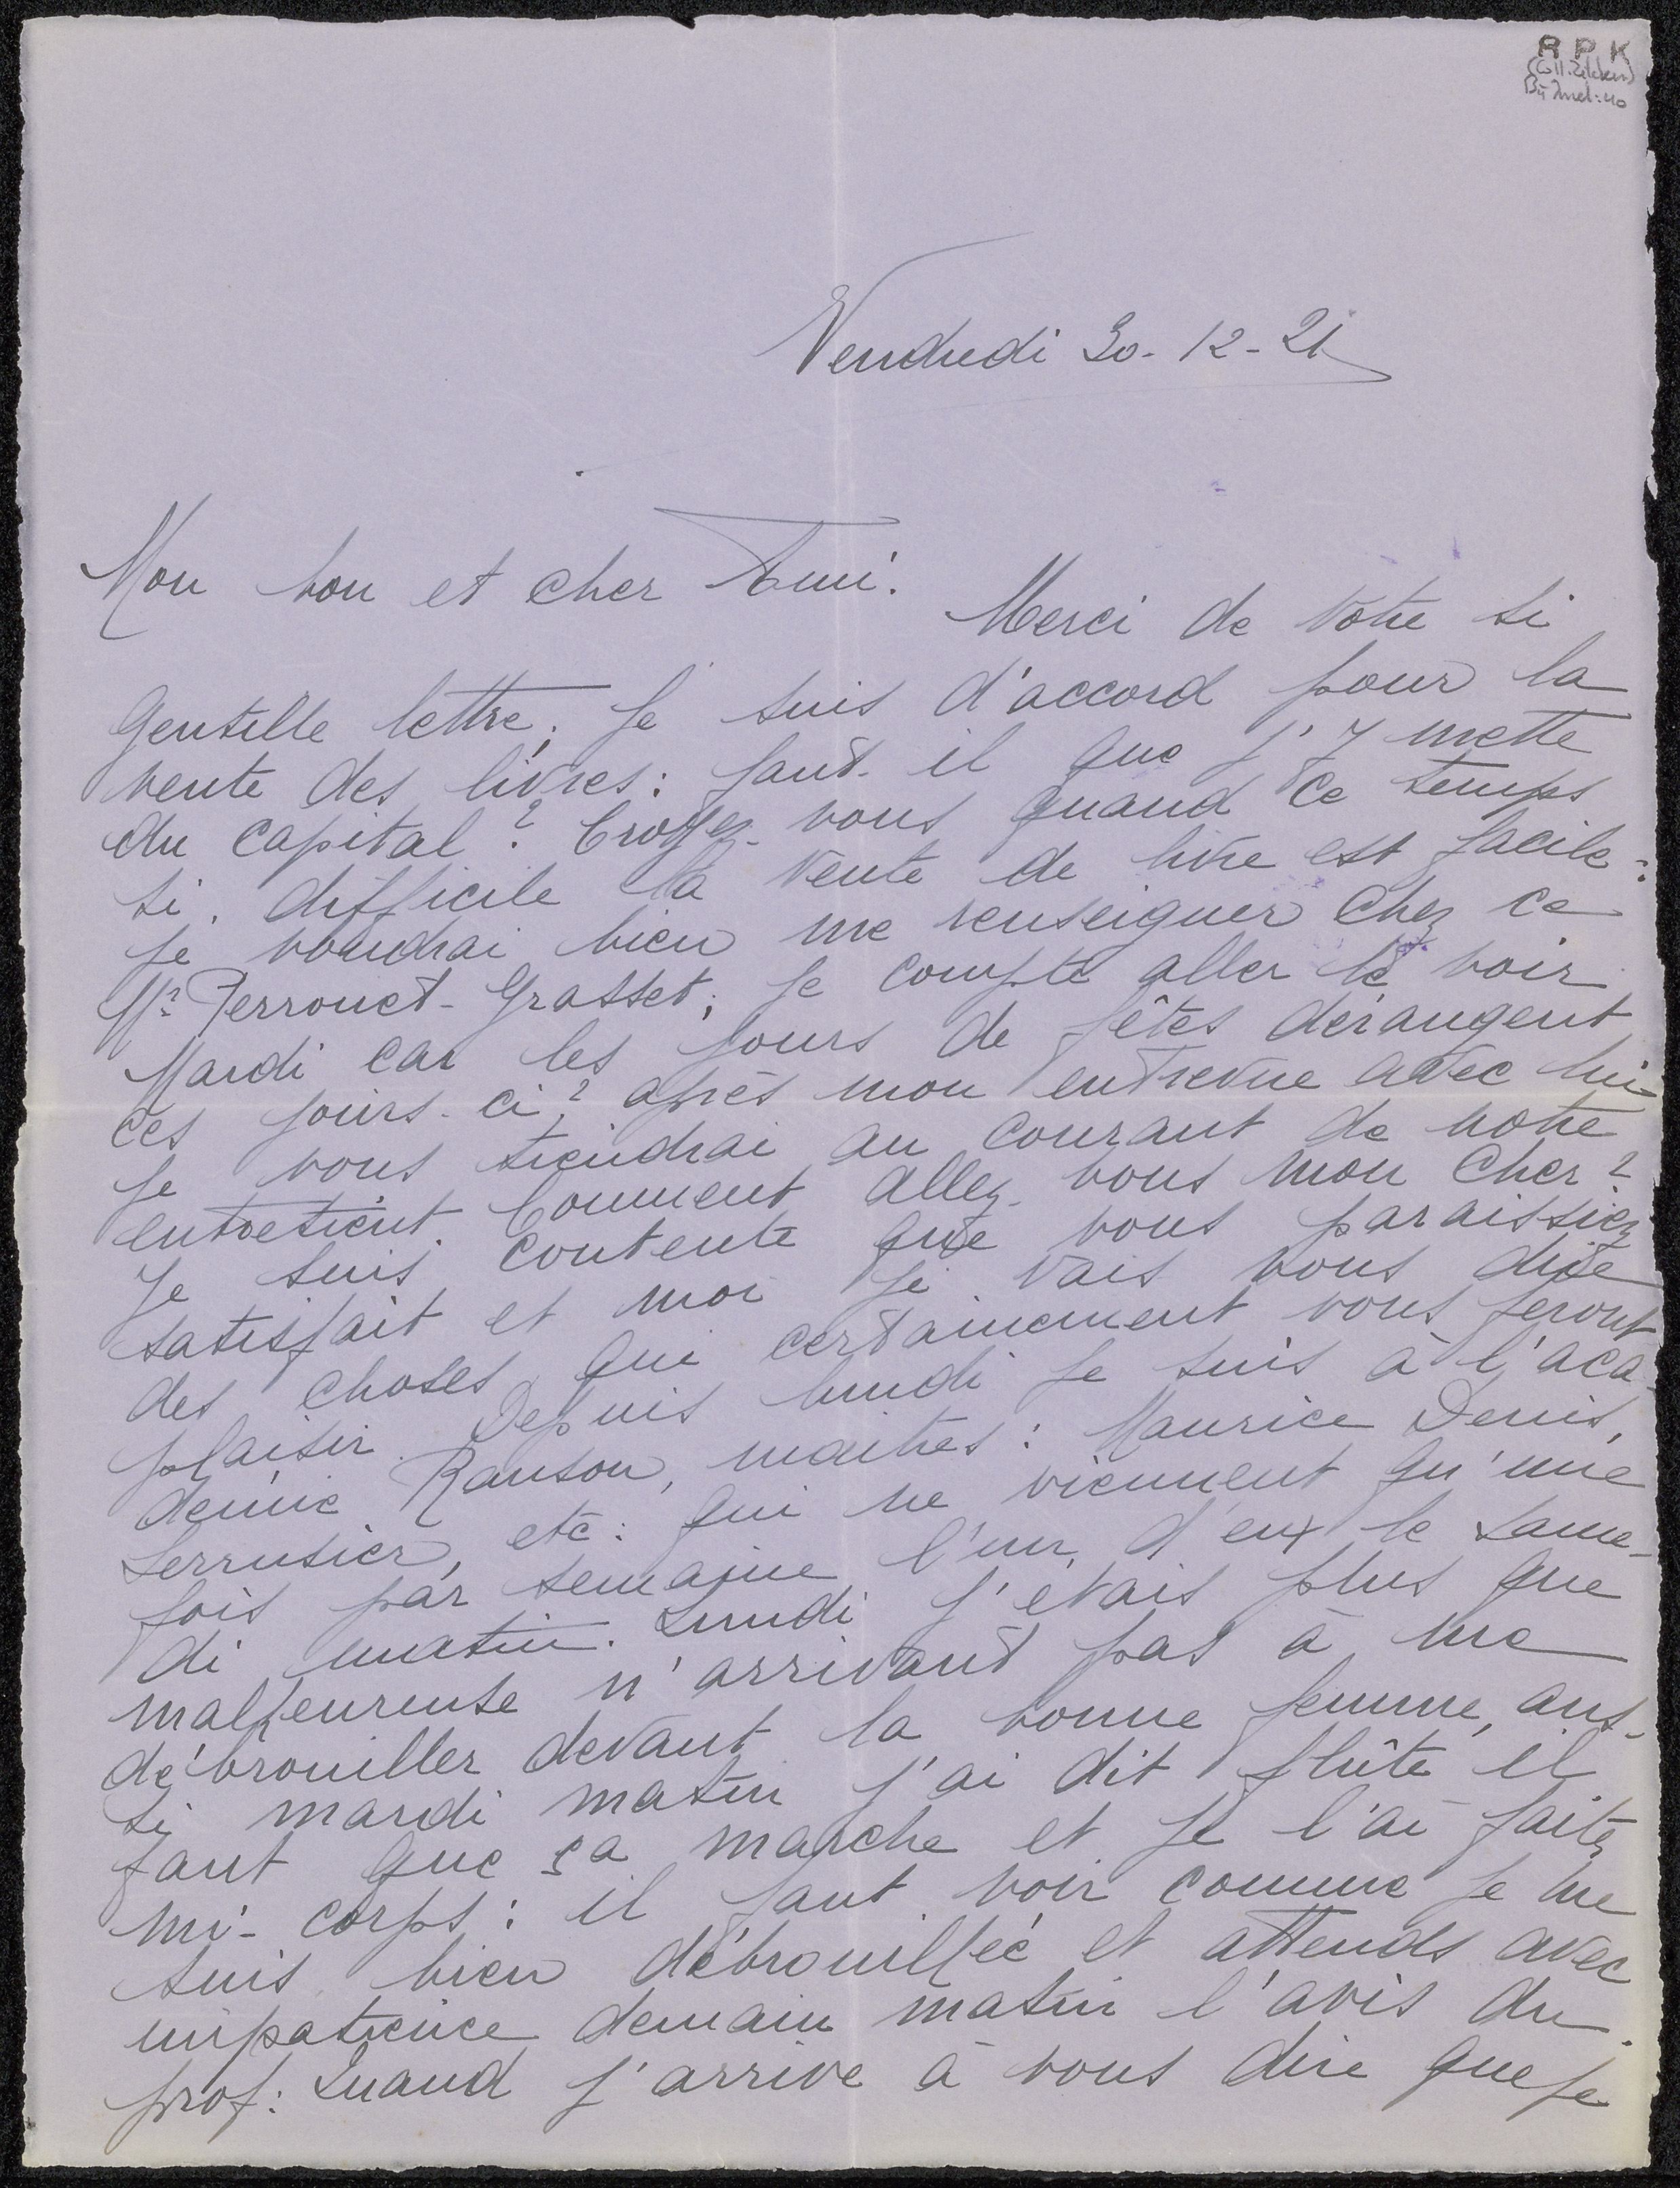 R P K
(Coll. Zilcken)
Vendredi 30-12-21
Mon bon et cher Ami.
Merci de votre si
gentille lettre. Je suis d'accord pour la
vente des livres: faut-il que j'y mette
du capital? Croyez-vous quand ce temps
si difficile la vente de livre est facile:
je voudrai bien me renseigner chez ce
Mr Perrouet-Grasset; je compte aller le voir
Mardi car les jours de fêtes dérangent
ces jours-ci? après mon entrevue avec lui
je vous tiendrai au courant de notre
entretient. Comment allez-vous mon cher?
Je suis contente que vous paraissiez
satisfait et moi je vais vous dire
des choses qui certainement vous feront
plaisir. Depuis lundi je suis à l'aca-
démie Ranson, maitres: Maurice Denis,
Serrusier, etc: qui ne viennent qu'une
fois par semaine l'un d'eux le same-
di matin. Lundi j'étais plus que
malheureuse n'arrivant pas à me
débrouiller devant la bonne femme, aus-
si mardi matin j'ai dit flûte il
faut que ça marche et je l'ai faite
mi-corps: il faut voir comme je me
suis bien débrouillée et attends avec
impatience demain matin l'avis du
prof: Quand j'arrive à vous dire que je